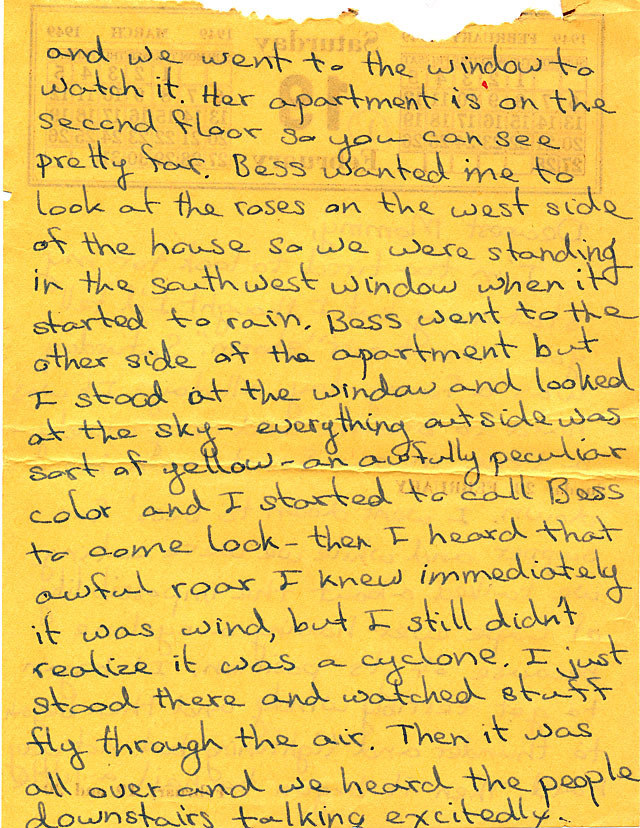 and we went to the window to
watch it. Her apartment is on the
second floor so you can see
pretty far. Bess wanted me to
look at the roses on the west side
of the house so we were standing
in the southwest window when it
started to rain. Bess went to the
other side of the apartment but
I stood at the window and looked
at the sky- everything outside was
sort of yellow-an awfully peculiar
color and I started to call Bess
to come look-then I heard that
awful roar I knew immediately
it was wind, but I still didn't
realize it was a cyclone. I just
stood there and watched stuff
fly through the air. Then it was
all over and we heard the people
downstairs talking excitedly.